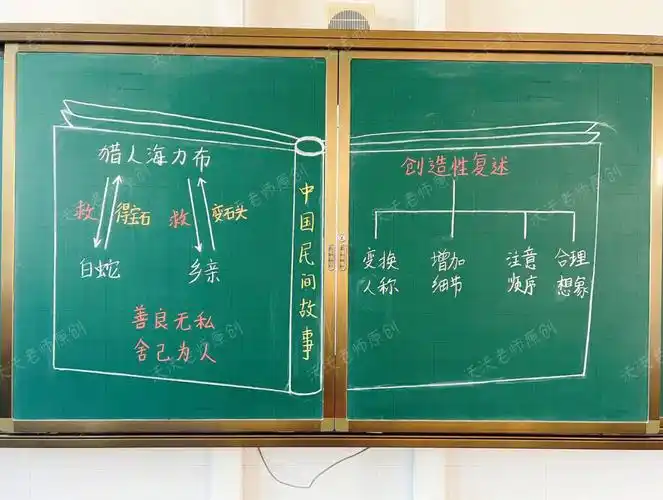 猎人海力布
救 得宝石 救 变石头
白蛇 乡亲
善良无私
舍己为人
中国民间故事
创造性复述
变换 增加 注意 合理
人称 细节 顺序 想象
天天老师原创